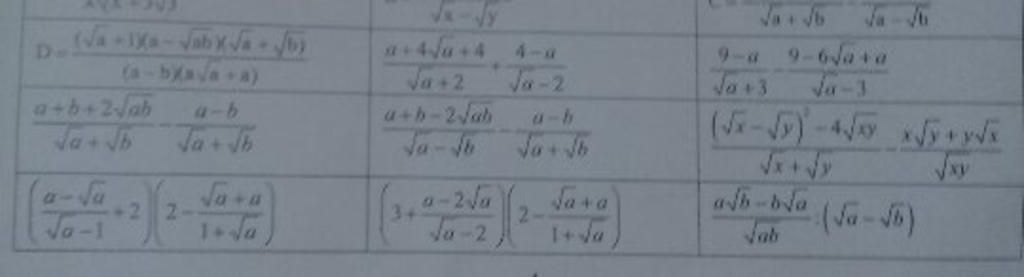 √x − √y
√a + √b √a − √b
D = (√a + 1)(a − √ab)(√a + √b) / (a − b)(a√a + a)
(a + 4√a + 4)/(√a + 2) + (4 − a)/(√a − 2)
(9 − a)/(√a + 3) − (9 − 6√a + a)/(√a − 3)
(a + b + 2√ab)/(√a + √b) − (a − b)/(√a + √b)
(a + b − 2√ab)/(√a − √b) − (a − b)/(√a + √b)
((√x − √y)² − 4√xy)/(√x + √y) − (x√y + y√x)/√xy
((a − √a)/(√a − 1) + 2)(2 − (√a + a)/(1 + √a))
(3 + (a − 2√a)/(√a − 2))(2 − (√a + a)/(1 + √a))
(a√b − b√a)/√ab : (√a − √b)